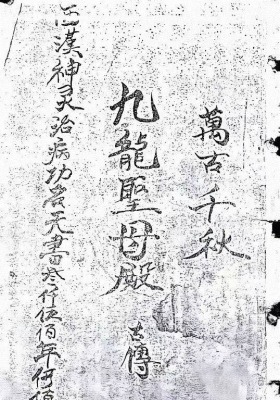 萬古千秋
九龍聖母殿 古傳
西漢神灵治病功天書叁仟伍佰年何